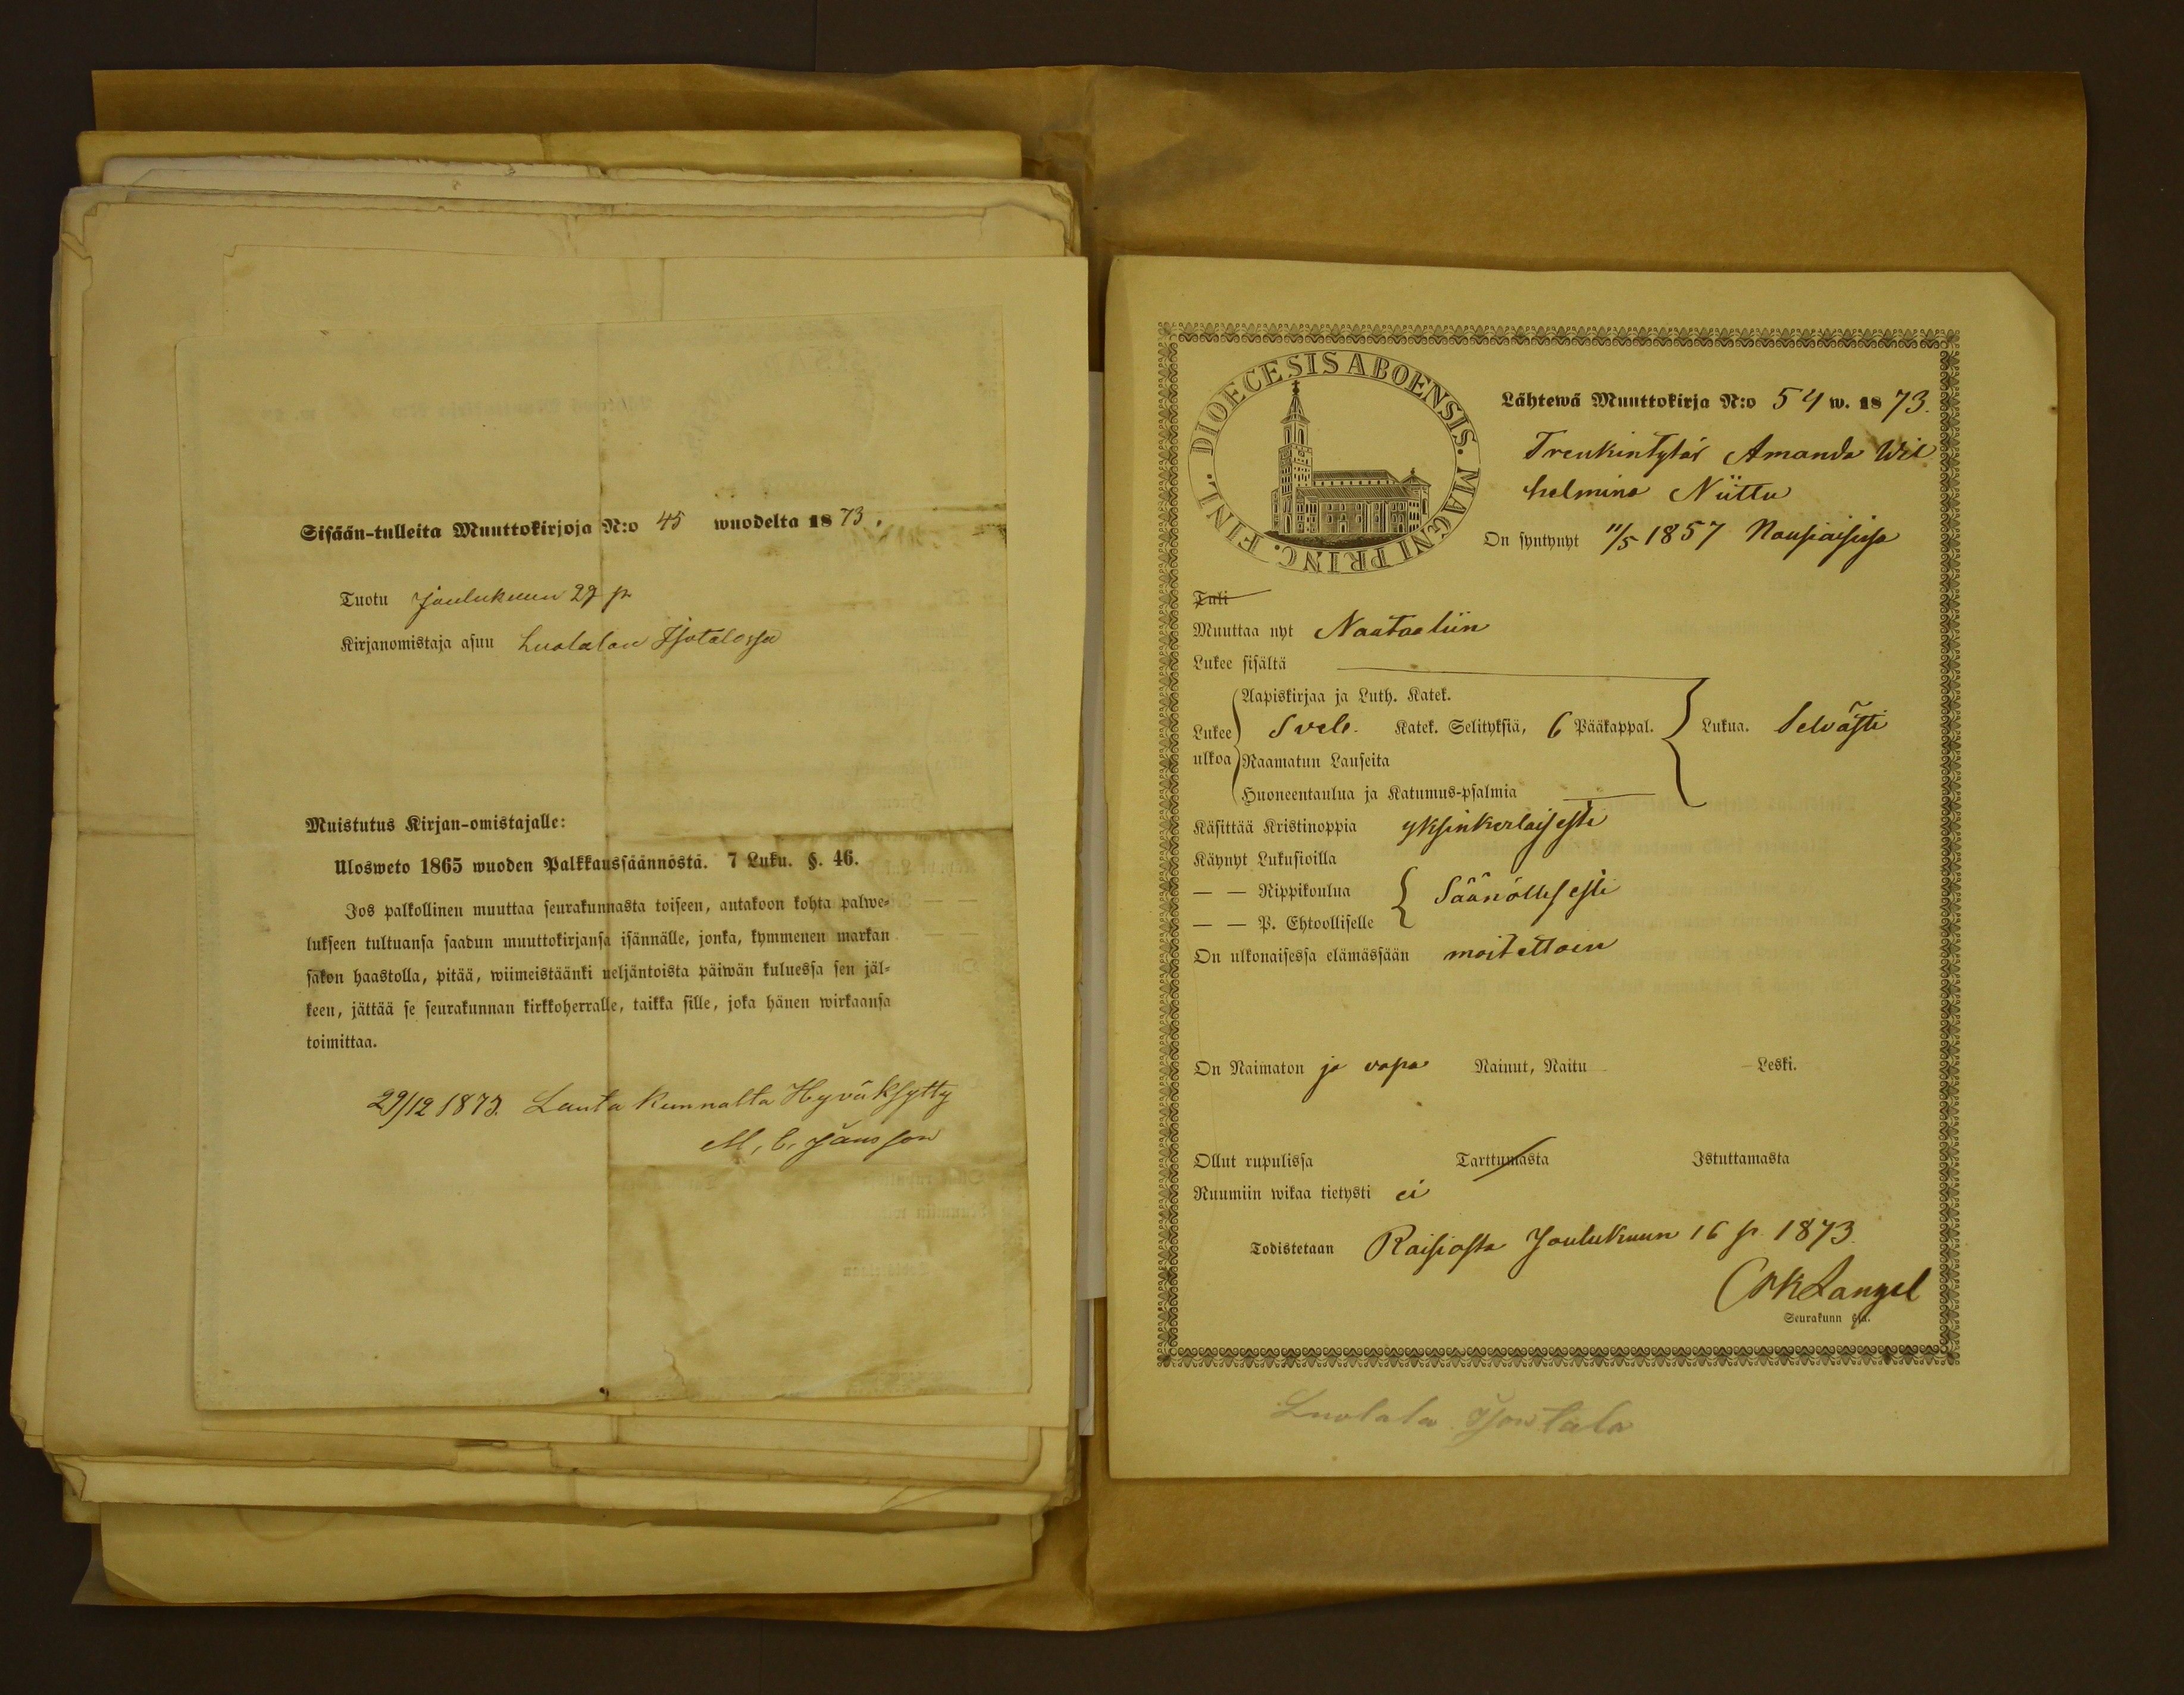 Sisään-tulleita Muuttokirjoja N:o 45 wuodelta 1873.
Tuotu Joulukuun 29 p
Kirjanomistaja asuu Luolalan Isotalossa
Muistutus Kirjan-omistajalle:
Ulosweto 1865 wuoden Palkkaussäännöstä. 7 Luku. §. 46.
Jos palkollinen muuttaa seurakunnasta toiseen, antakoon kohta palwe-
lukseen tultuansa saadun muuttokirjansa isännälle, jonka, kymmenen markan
sakon haastolla, pitää, wiimeistäänki neljäntoista päiwän kuluessa sen jäl-
keen, jättää se seurakunnan kirkkoherralle, taikka sille, joka hänen wirkaansa
toimittaa.
29/12 1873. Lautakunnalta Hyväksytty
M, E, Jansson
DIOECESIS ABOENSIS. MAGNI PRINC. FINL.
Lähtewä Muuttokirja N:o 54 w. 1873.
Trenkintytär Amanda Wil
helmina Niittu
On syntynyt 11/5 1857 Nousiaisissa
Tuli
Muuttaa nyt Naataaliin
Lukee sisältä
Aapiskirjaa ja Luth. Katek.
Lukee Sveb. Katek. Selityksiä, 6 Pääkappal. Lukua. Selvästi
ulkoa Raamatun Lauseita
Huoneentaulua ja Katumus-psalmia
Käsittää Kristinoppia yksinkertaisesti
Käynyt Lukusioilla
— — Rippikoulua Säänöllisesti
— — P. Ehtoolliselle
On ulkonaisessa elämässään moitettoin
On Naimaton ja vapa Nainut, Naitu Leski.
Ollut rupulissa Tarttumasta Istuttamasta
Ruumiin wikaa tietysti ei
Todistetaan Raisiosta Joulukuun 16 p. 1873.
Langel
Seurakunn
Luolala Isotalo